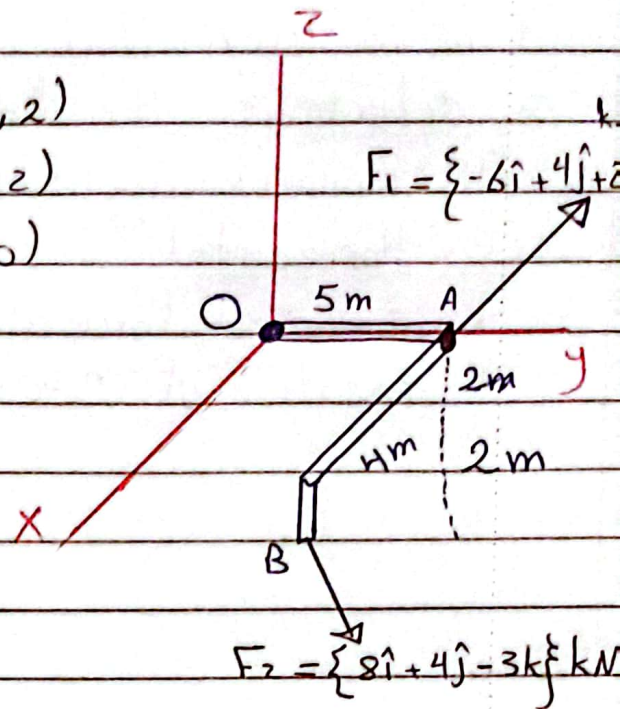 z
, 2)
k
2)
F₁ = {-6î + 4ĵ + 2
0)
O 5m A
y
2m
4m 2m
X
B
F₂ = {8î + 4ĵ - 3k} kN